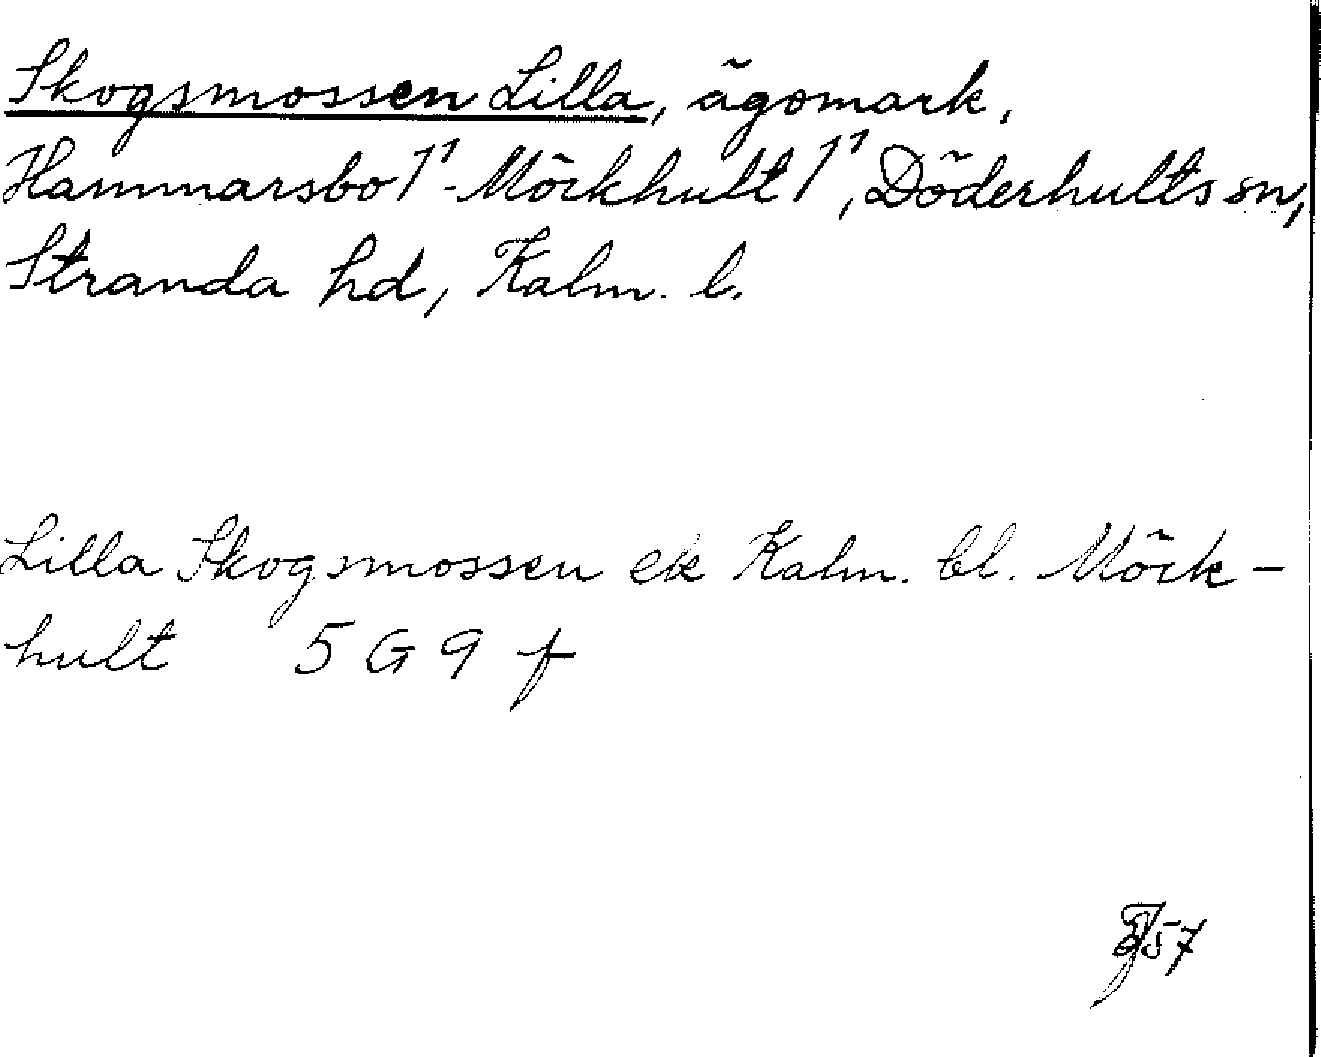 Skogsmossen Lilla, ägomark,
Hammarsbo 1¹-Mörkhult 1¹, Döderhults sn,
Stranda hd, Kalm. l.
Lilla Skogsmossen ek Kalm. bl. Mörk-
hult 5 G 9 f
57